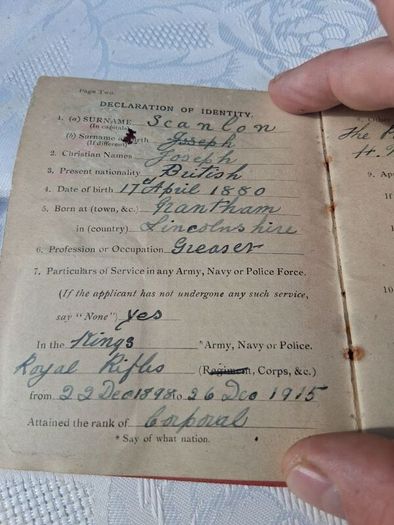 Page Two.
DECLARATION OF IDENTITY.
1. (a) SURNAME Scanlon
(In capitals)
(b) Surname at birth Joseph
(If different)
2. Christian Names Joseph
3. Present nationality British
4. Date of birth 17 April 1880
5. Born at (town, &c.) Grantham
in (country) Lincolnshire
6. Profession or Occupation Greaser
7. Particulars of Service in any Army, Navy or Police Force.
(If the applicant has not undergone any such service,
say "None") yes
In the Kings *Army, Navy or Police.
Royal Rifles (Regiment, Corps, &c.)
from 22 Dec 1898 to 26 Dec 1915
Attained the rank of Corporal
* Say of what nation.
8. Other
The
9.
10